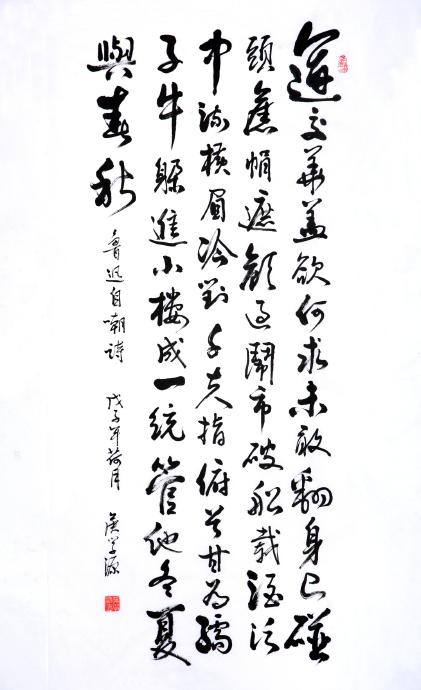 運交華蓋欲何求未敢翻身已碰
頭舊帽遮顏過鬧市破船載酒泛
中流橫眉冷對千夫指俯首甘為孺
子牛躲進小樓成一統管他冬夏
與春秋
魯迅自嘲詩 戊子年荷月